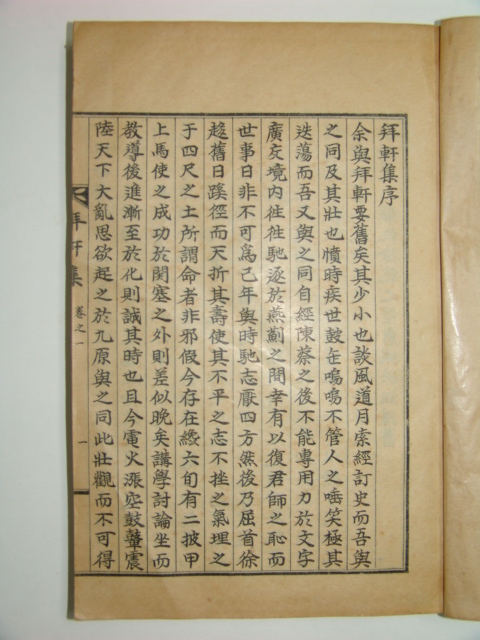 拜軒集序
余與拜軒要舊矣其少小也談風道月索經訂史而吾與
之同及其壯也憤時疾世鼓缶嗚嗚不管人之唾笑極其
迭蕩而吾又與之同自經陳蔡之後不能專用力於文字
廣交境内徃徃馳逐於燕薊之間幸有以復君師之恥而
世事日非不可爲已年與時馳志厭四方然後乃屈首徐
趍舊日蹊徑而天折其壽使其不平之志不挫之氣埋之
于四尺之土所謂命者非邪假今存在纔六旬有二披甲
上馬使之成功於関塞之外則差似晩矣講學討論坐而
教導後進漸至於化則誠其時也且今電火漲空鼓鼙震
陸天下大亂思欲起之於九原與之同此壯觀而不可得
拜軒集
卷之一
一